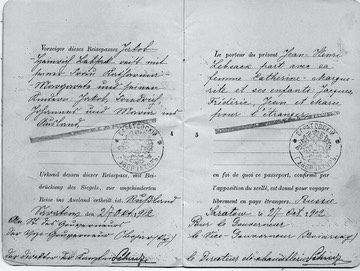 Vorzeiger dieses Reisepasses Jakob
Heinrich Lebsack reist mit
seiner Frau Katharina
Margareta und seinen
Kindern Jakob, Friedrich,
Johannes und Maria ins
Ausland.
САРАТОВСКІЙ
ГУБЕРНАТОРЪ
4
Urkund dessen dieser Reisepass, mit Bei-
drückung des Siegels, zur ungehinderten
Reise ins Ausland ertheilt ist. Rußland
Saratow, den 21 Okt. 1912
Der Vize-Gouverneur
Der Direktor der Kanzlei
Le porteur du présent Jean-Henri
Lebsack part avec sa
femme Catherine-Margue-
rite et ses enfants Jacques,
Frédéric, Jean et Marie
pour l'étranger.
САРАТОВСКІЙ
ГУБЕРНАТОРЪ
5
en foi de quoi ce passeport, confirmé par
l'apposition du scellé, est donné pour voyager
librement en pays étrangers. Russie
Saratow, le 21 Oct. 1912
Pour le Gouverneur
le Vice-Gouverneur
le Directeur de chancellerie